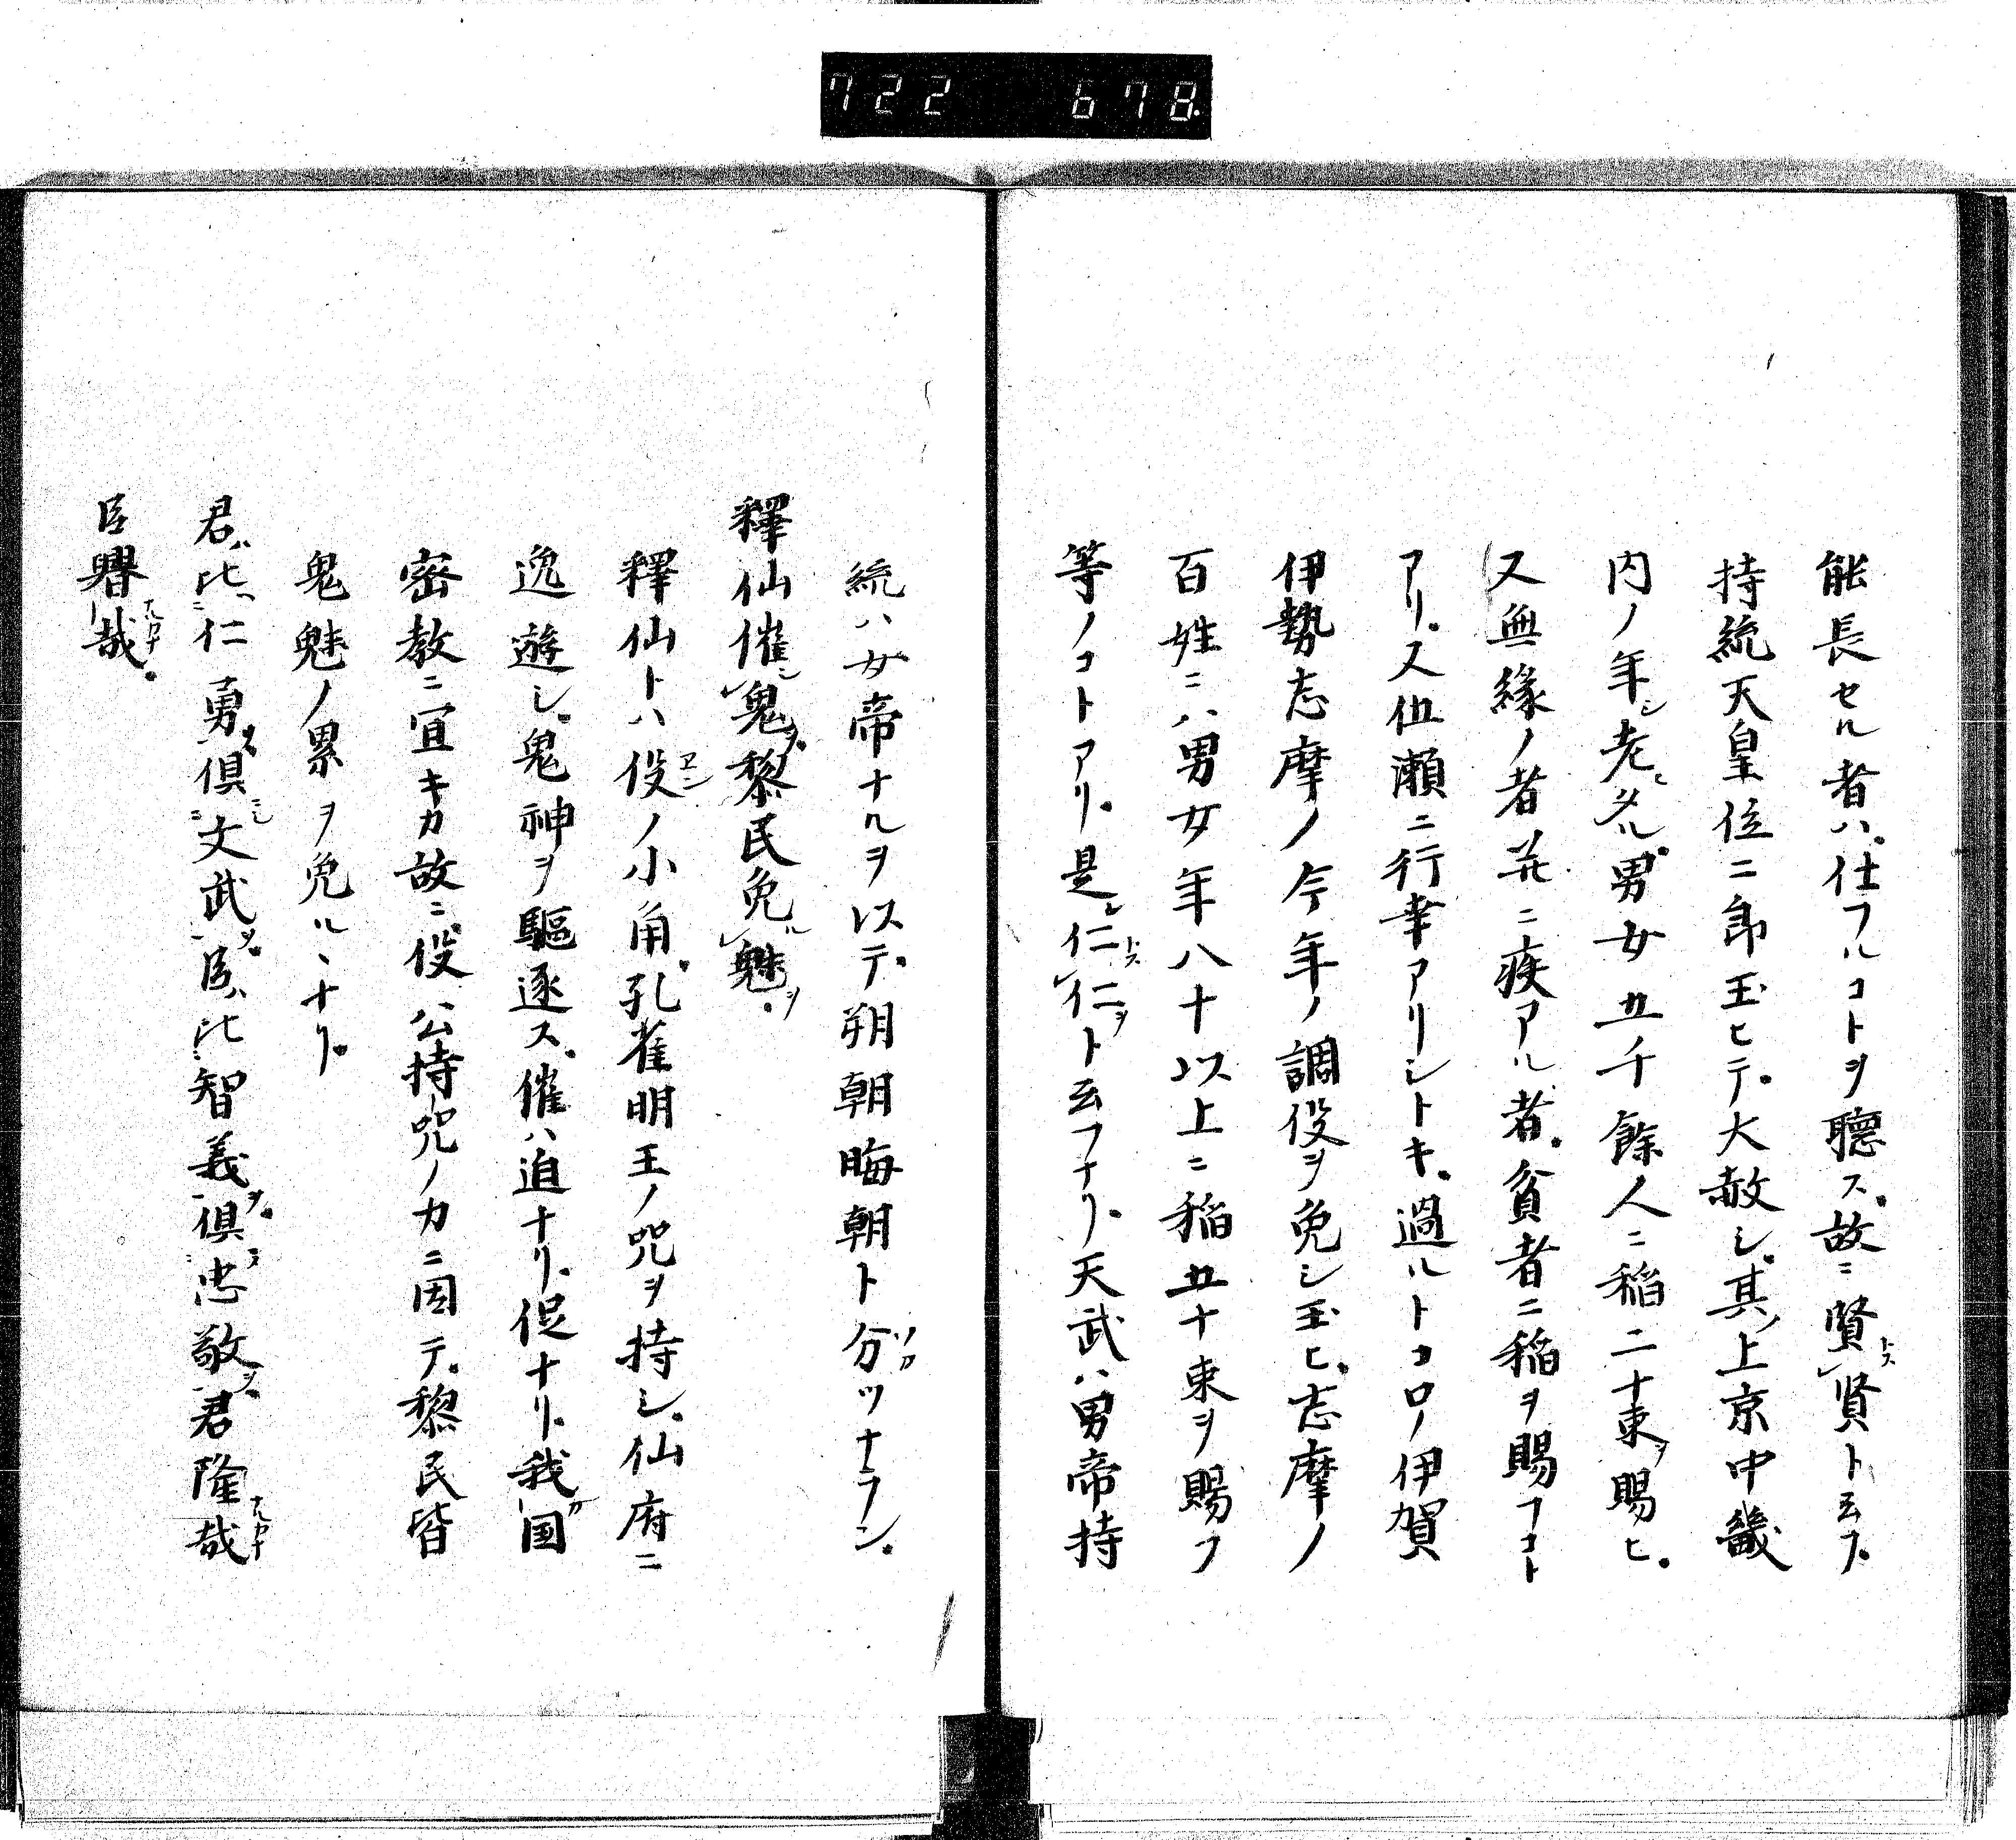 722 678
能長セル者ハ仕フルコトヲ聴ス故ニ賢トス賢ト云フ
持統天皇位ニ即玉ヒテ大赦シ其ノ上京中畿
内ノ年シ老ヒタル男女五千餘人ニ稲二十束ヲ賜ヒ
又無縁ノ者并ニ疾アル者貧者ニ稲ヲ賜フコト
アリ又伍瀬ニ行幸アリシトキ過ルトコロノ伊賀
伊勢志摩ノ今年ノ調役ヲ免シ玉ヒ志摩ノ
百姓ニハ男女年八十以上ニ稲五十束ヲ賜フ
等ノコトアリ是レ仁トス仁ヲト云フナリ天武ハ男帝持
統ハ女帝ナルヲ以テ朔朝晦朝ト分ツナラン
釋仙催シ鬼ヲ黎民免ル魅ヲ
釋仙トハ役ノ小角孔雀明王ノ咒ヲ持シ仙府ニ
逸遊シ鬼神ヲ駆逐ス催ハ迫ナリ促ナリ我カ国
密教ニ宜キカ故ニ役公持咒ノ力ニ因テ黎民皆
鬼魅ノ累ヲ免ルヽナリ
君ハ比仁勇ヲ倶ニシ文武ヲ臣ハ比智義ヲ倶ニシ忠敬ヲ君隆哉
臣譽哉